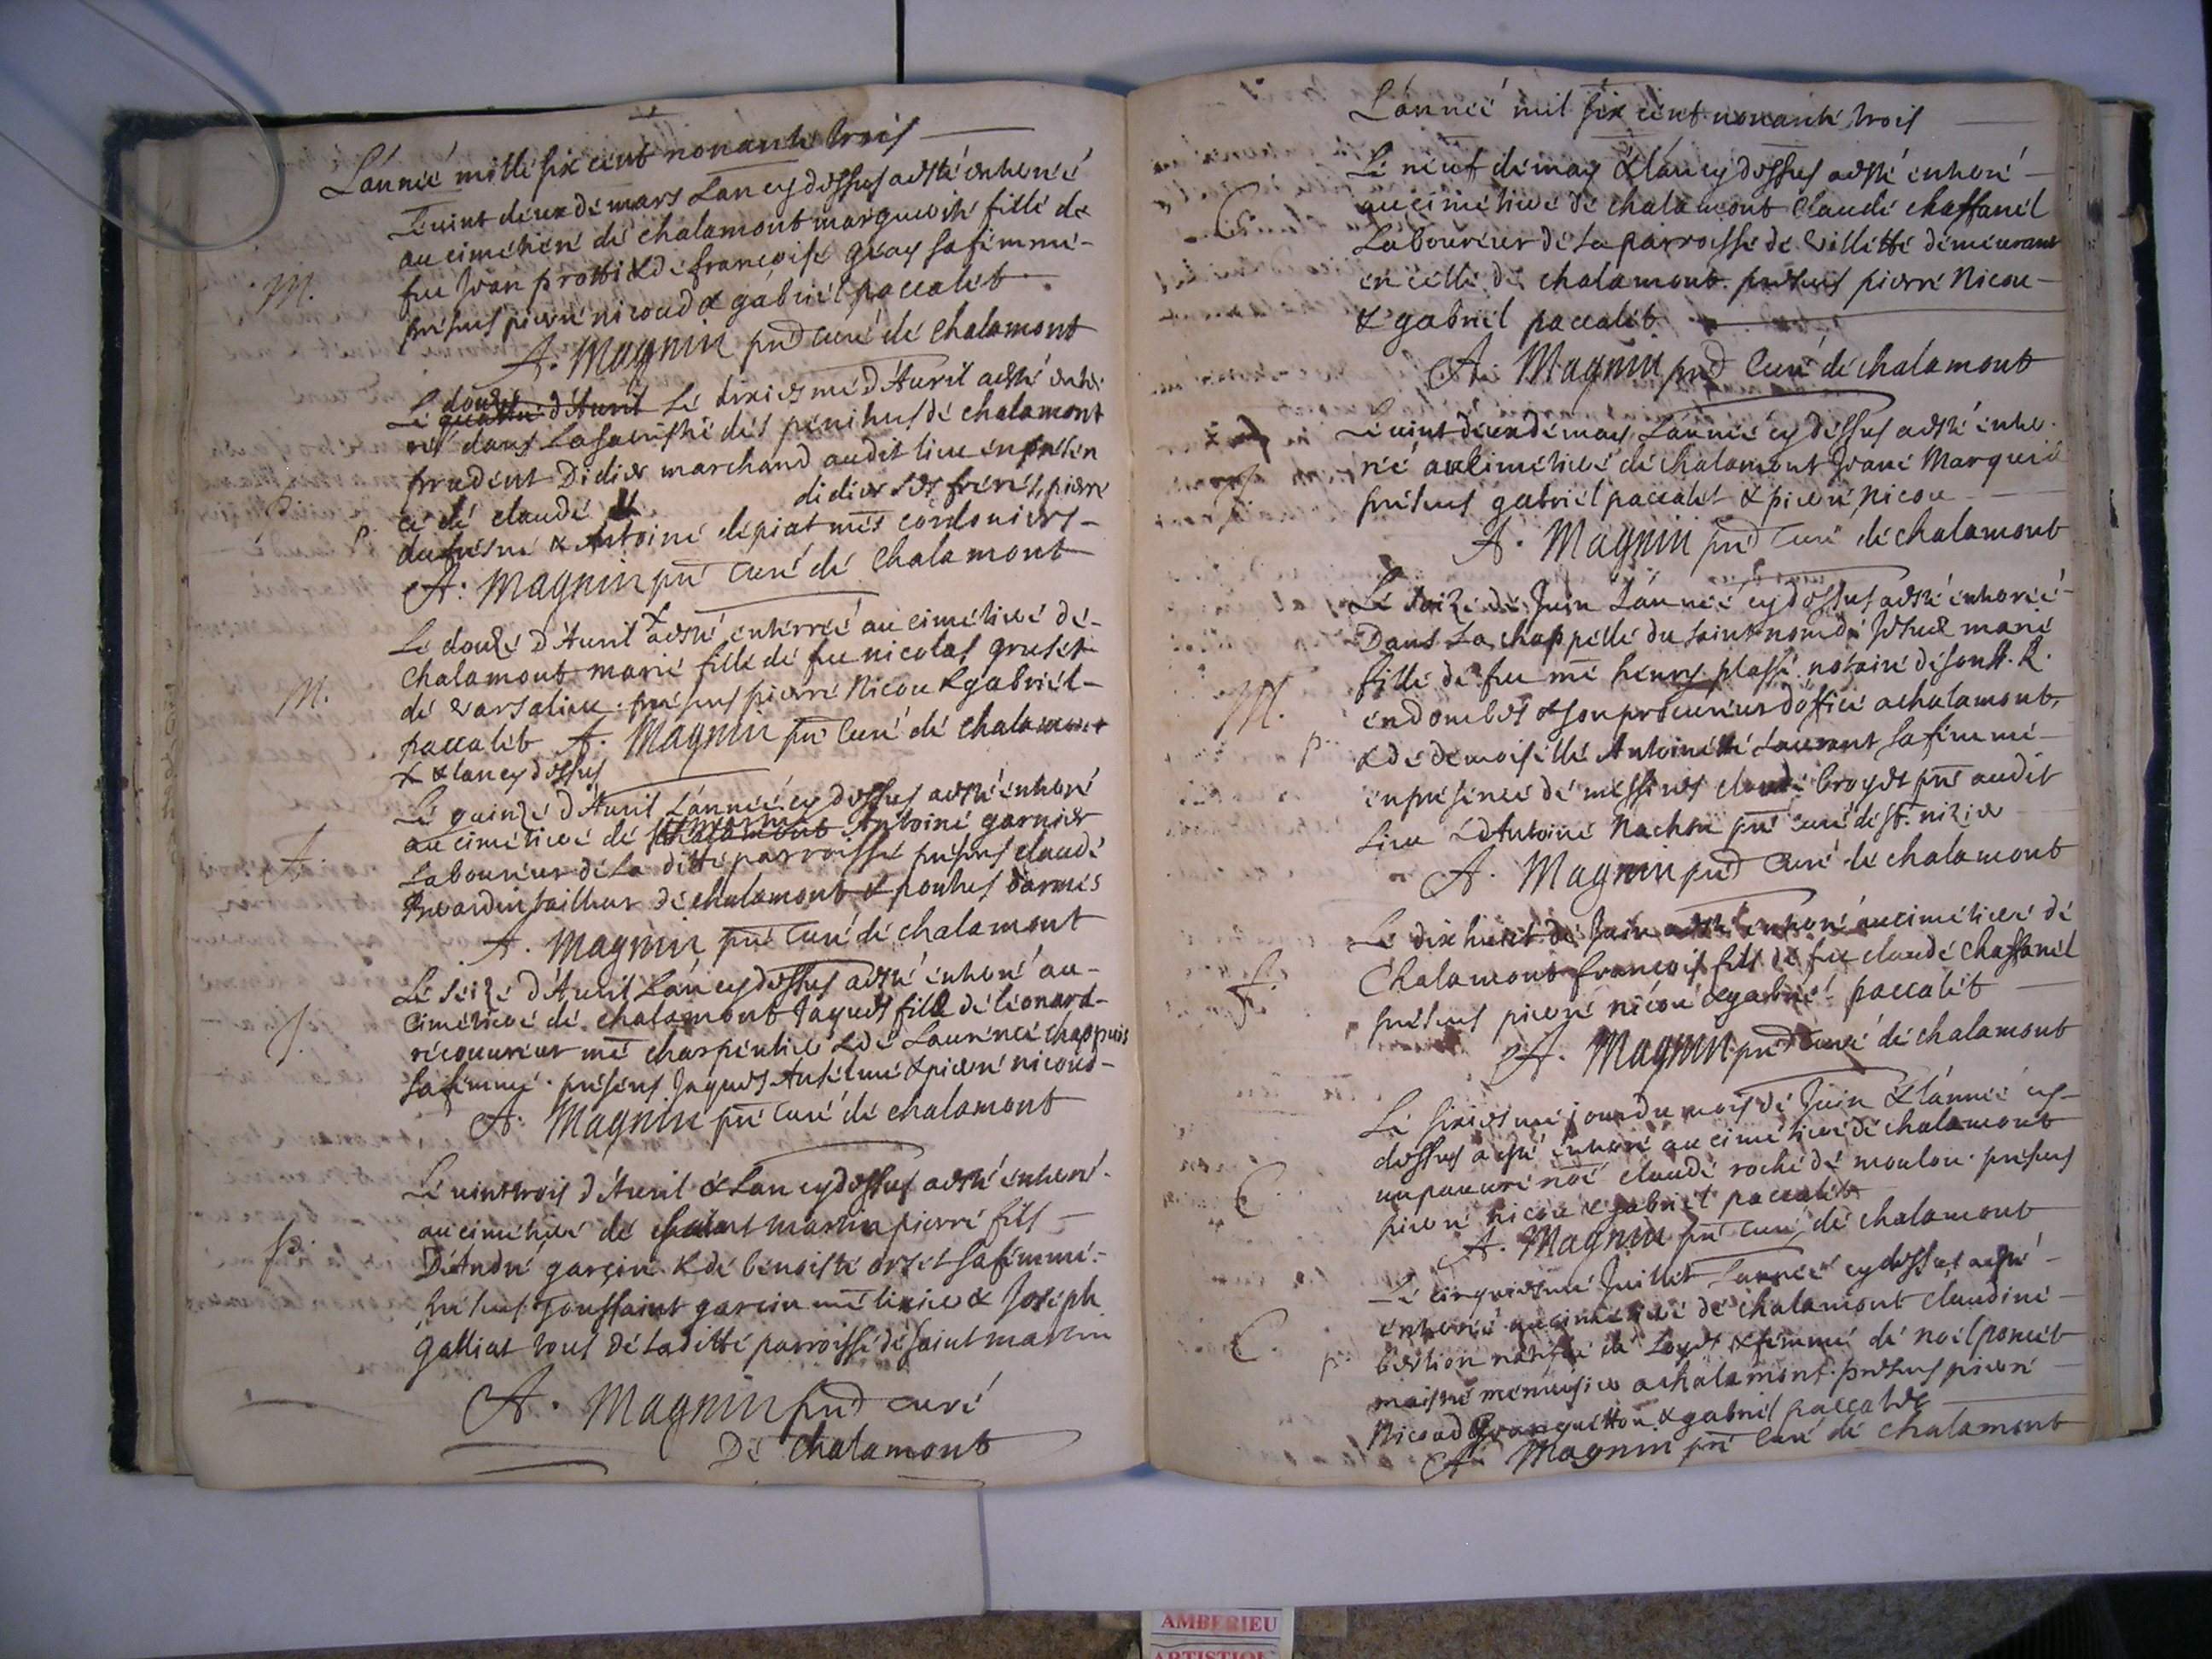 L'année mille six cent nonante trois
Le vint deux de mars L'an cy dessus a esté enterrée
au cimetiere de chalamont marguerite fille de
feu Jean prost & de françoise sa femme
presens pierre nicoud & gabriel paccalet
M.
A. Magnin prb curé de chalamont
Le d'Avril Le dixiesme d'Avril a esté enter
ré dans La des penitens de chalamont
prudent Didier marchand audit lieu en presen
P.
ce de claude didier ses freres, pierre
dufresne & Antoine depiat mes cordoniers
A. Magnin pre curé de chalamont
Le douze D'Avril + a esté enterrée au cimetiere de
chalamont marie fille de feu nicolas gruset
M.
de versalieu. presens pierre Nicou & gabriel
paccalet A. Magnin pre curé de chalamont
+ & l'an cy dessus
Le quinze d'Avril L'année cy dessus a esté enterré
au cimetiere de Antoine garnier
A.
Laboureur de La ditte parroisse presens claude
tailleur de chalamont &
A. Magnin pre curé de chalamont
Le seize d'Avril L'an cy dessus a esté enterré au
cimetiere de chalamont Jaques fils de leonard
J.
recouvreur me charpentier & de Laurence chappuis
sa femme. presens Jaques Antelme & pierre nicoud
A. Magnin pre curé de chalamont
Le vint trois d'Avril & L'an cy dessus a esté enterré
au cimetiere de saint martin pierre fils
P.
D'André garcin & de benoiste orset sa femme
presens Toussaint garcin me & Joseph
galliat tous de La ditte parroisse de saint martin
A. Magnin prb curé
De chalamont
L'année mil six cent nonante trois
Le neuf de may & l'an cy dessus a esté enterré
au cimetiere de chalamont Claude chaffanel
C.
Laboureur de La parroisse de villette demeurant
en celle de chalamont. presens pierre Nicou
& gabriel paccalet
A. Magnin prb curé de chalamont
Le vint deux de may L'année cy dessus a esté enter
rée au cimetiere de chalamont Jeane
J.
presens gabriel paccalet & pierre nicou
A. Magnin prb curé de chalamont
Le de Juin L'année cy dessus a esté enterrée
Dans La chappelle du saint nom de Jesus marie
fille de feu me henry plasse notaire de son A. R.
M.
en dombes & son procureur d'office a chalamont,
P.
& de demoiselle Antoinette Laurant sa femme
en presence de messires claude broyet pre audit
Lieu & d'Antoine pre curé de St. nizier
A. Magnin prb curé de chalamont
Le dix huit de Juin a esté enterré au cimetiere de
Chalamont françois fils de feu claude chaffanel
f.
presens pierre nicou & gabriel paccalet
A. Magnin prb curé de chalamont
Le sixiesme jour du mois de Juin & l'année cy
dessus a esté enterré au cimetiere de chalamont
un pauvre noé claude roche de moulon. presens
C.
pierre nicou & gabriel paccalet
A. Magnin pre curé de chalamont
Le cinquiesme Juillet L'année cy dessus a esté
enterrée au cimetiere de chalamont claudine
C. P.
berlion native de Loyes & femme de noel poncet
maistre menuisier a chalamont. presens pierre
Nicoud & gabriel paccalet
A. Magnin pre curé de chalamont
AMBERIEU